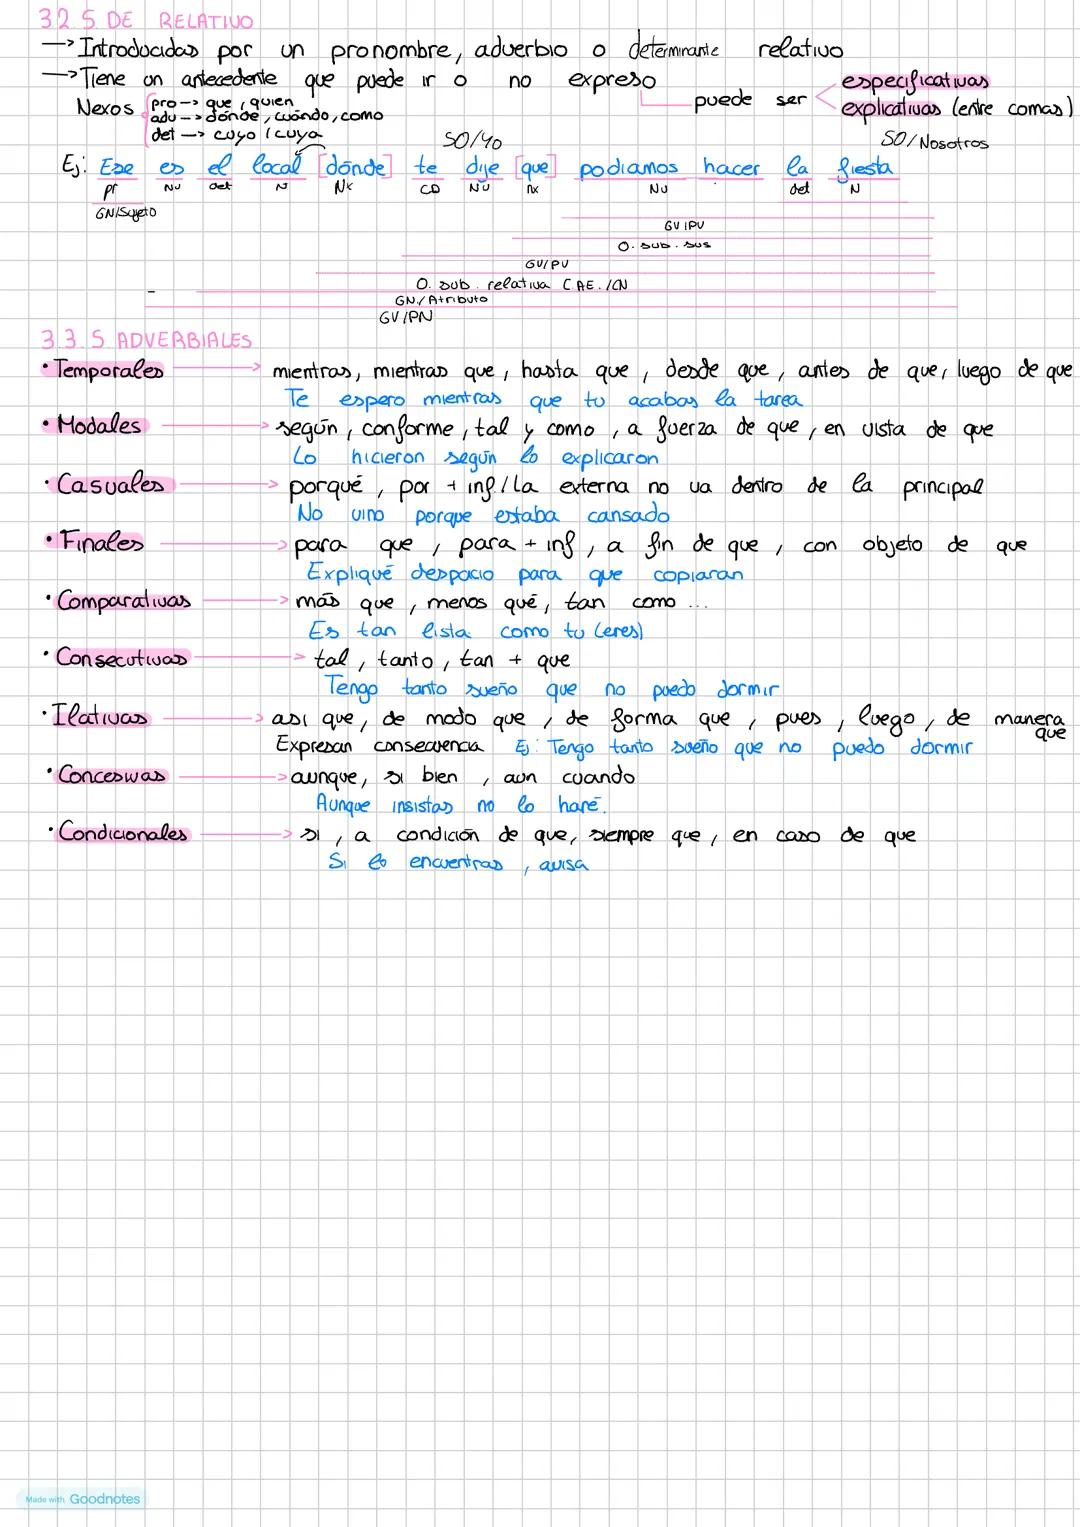 3.2. S DE RELATIVO
→ Introducidas por un pronombre, adverbio o determinante relativo
→ Tiene un antecedente que puede ir o no expreso
puede ser
especificativas
explicativas (entre comas)
Nexos
pro → que, quien
adv → dónde, cuándo, como
det → cuyo / cuya
SO/Yo
SO/Nosotros
Ej: Ese es el local [dónde] te dije [que] podiamos hacer la fiesta
pr NV det N NX CD NV nx NV det N
GN/Sujeto
GV/PV
O. sub. sus
GV/PV
O. sub. relativa CAE./CN
GN/Atributo
GV/PN
3.3. S ADVERBIALES
• Temporales → mientras, mientras que, hasta que, desde que, antes de que, luego de que
Te espero mientras que tu acabas la tarea
• Modales → según, conforme, tal y como, a fuerza de que, en vista de que
Lo hicieron según lo explicaron
• Casuales → porqué, por + inf / La externa no va dentro de la principal
No vino porque estaba cansado
• Finales → para que, para + inf, a fin de que, con objeto de que
Expliqué despacio para que copiaran
• Comparativas → más que, menos qué, tan como ...
Es tan lista como tu (eres)
• Consecutivas → tal, tanto, tan + que
Tengo tanto sueño que no puedo dormir
• Ilativas → asi que, de modo que, de forma que, pues, luego, de manera que
Expresan consecuencia Ej: Tengo tanto sueño que no puedo dormir
• Concesivas → aunque, si bien, aun cuando
Aunque insistas no lo haré.
• Condicionales → si, a condición de que, siempre que, en caso de que
Si lo encuentras, avisa
Made with Goodnotes